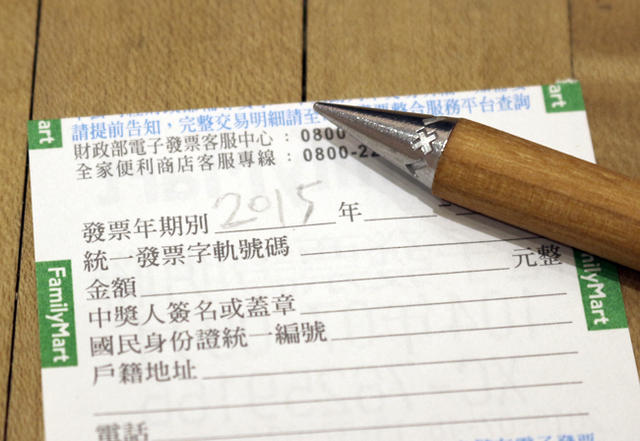 請提前告知,完整交易明細請至 整合服務平台查詢
財政部電子發票客服中心:0800
全家便利商店客服專線:0800-22
發票年期別 2015 年
統一發票字軌號碼
金額 元整
中獎人簽名或蓋章
國民身份證統一編號
戶籍地址
電話
FamilyMart
FamilyMart